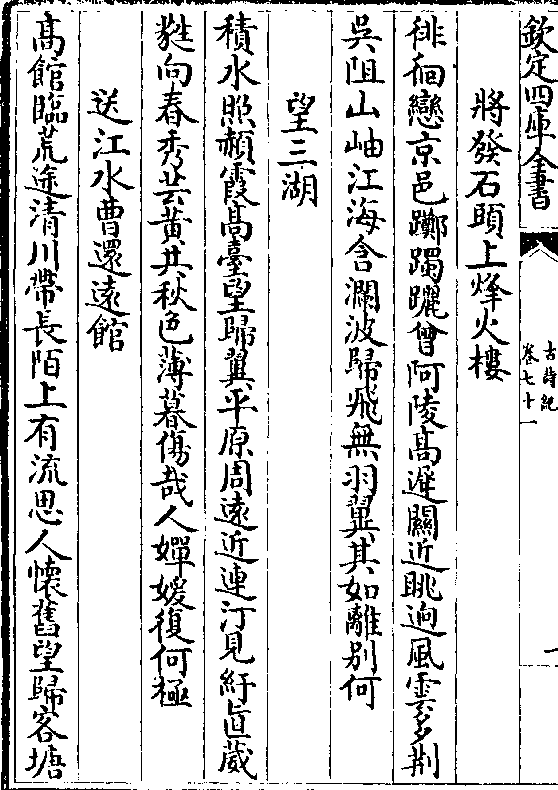 欽定四庫全書
古詩紀
卷七十一
將發石頭上烽火樓
徘徊戀京邑躑躅躧曾阿陵髙遲闗近眺逈風雲多荆
吳阻山岫江海含瀾波歸飛無羽翼其如離别何
望三湖
積水照赬霞髙臺望歸翼平原周遠近連汀見紆直葳
蕤向春秀芸黄共秋色薄暮傷哉人嬋媛復何極
送江水曹還遠館
髙館臨荒途清川帶長陌上有流思人懐舊望歸客塘